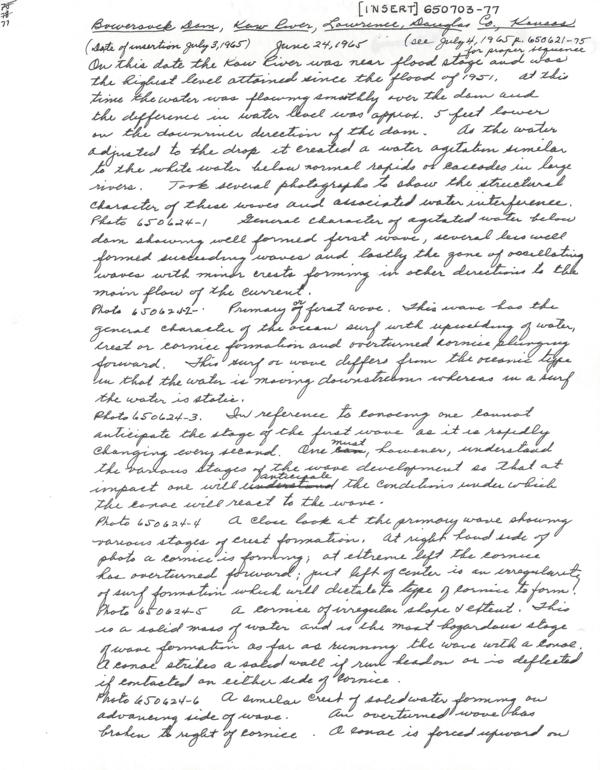 75
76
77
[INSERT] 650703-77
Bowersock Dam, Kaw River, Lawrence, Douglas Co, Kansas
(Date of insertion July 3, 1965) June 24, 1965 (see July 4, 1965 p. 650621-75
for proper sequence
On this date the Kaw River was near flood stage and was
the highest level attained since the flood of 1951. At this
time the water was flowing smoothly over the dam and
the difference in water level was approx. 5 feet lower
on the downriver direction of the dam. As the water
adjusted to the drop it created a water agitation similar
to the white water below normal rapids or cascades in large
rivers. Took several photographs to show the structural
character of these waves and associated water interference.
Photo 650624-1 General character of agitated water below
dam showing well formed first wave, several less well
formed succeeding waves and lastly the zone of oscillating
waves with minor crests forming in other directions to the
main flow of the current.
Photo 650624-2-. Primary or first wave. This wave has the
general character of the ocean surf with upwelding of water,
crest or cornice formation and overturned cornice plunging
forward. This surf or wave differs from the oceanic type
in that the water is moving downstream whereas in a surf
the water is static.
Photo 650624-3. In reference to canoeing one cannot
anticipate the stage of the first wave as it is rapidly
changing every second. One must, however, understand
the various stages of the wave development so that at
impact one will understand anticipate the conditions under which
the canoe will react to the wave.
Photo 650624-4 A close look at the primary wave showing
various stages of crest formation. At right hand side of
photo a cornice is forming; at extreme left the cornice
has overturned forward; just left of center is an irregularity
of surf formation which will dictate to type of cornice to form.
Photo 650624-5 A cornice of irregular slope & extent. This
is a solid mass of water and is the most hazardous stage
of wave formation as far as running the wave with a canoe.
A canoe strikes a solid wall if run head on or is deflected
if contacted on either side of cornice.
Photo 650624-6 A similar crest of solid water forming on
advancing side of wave. An overturned wave has
broken to right of cornice. A canoe is forced upward on